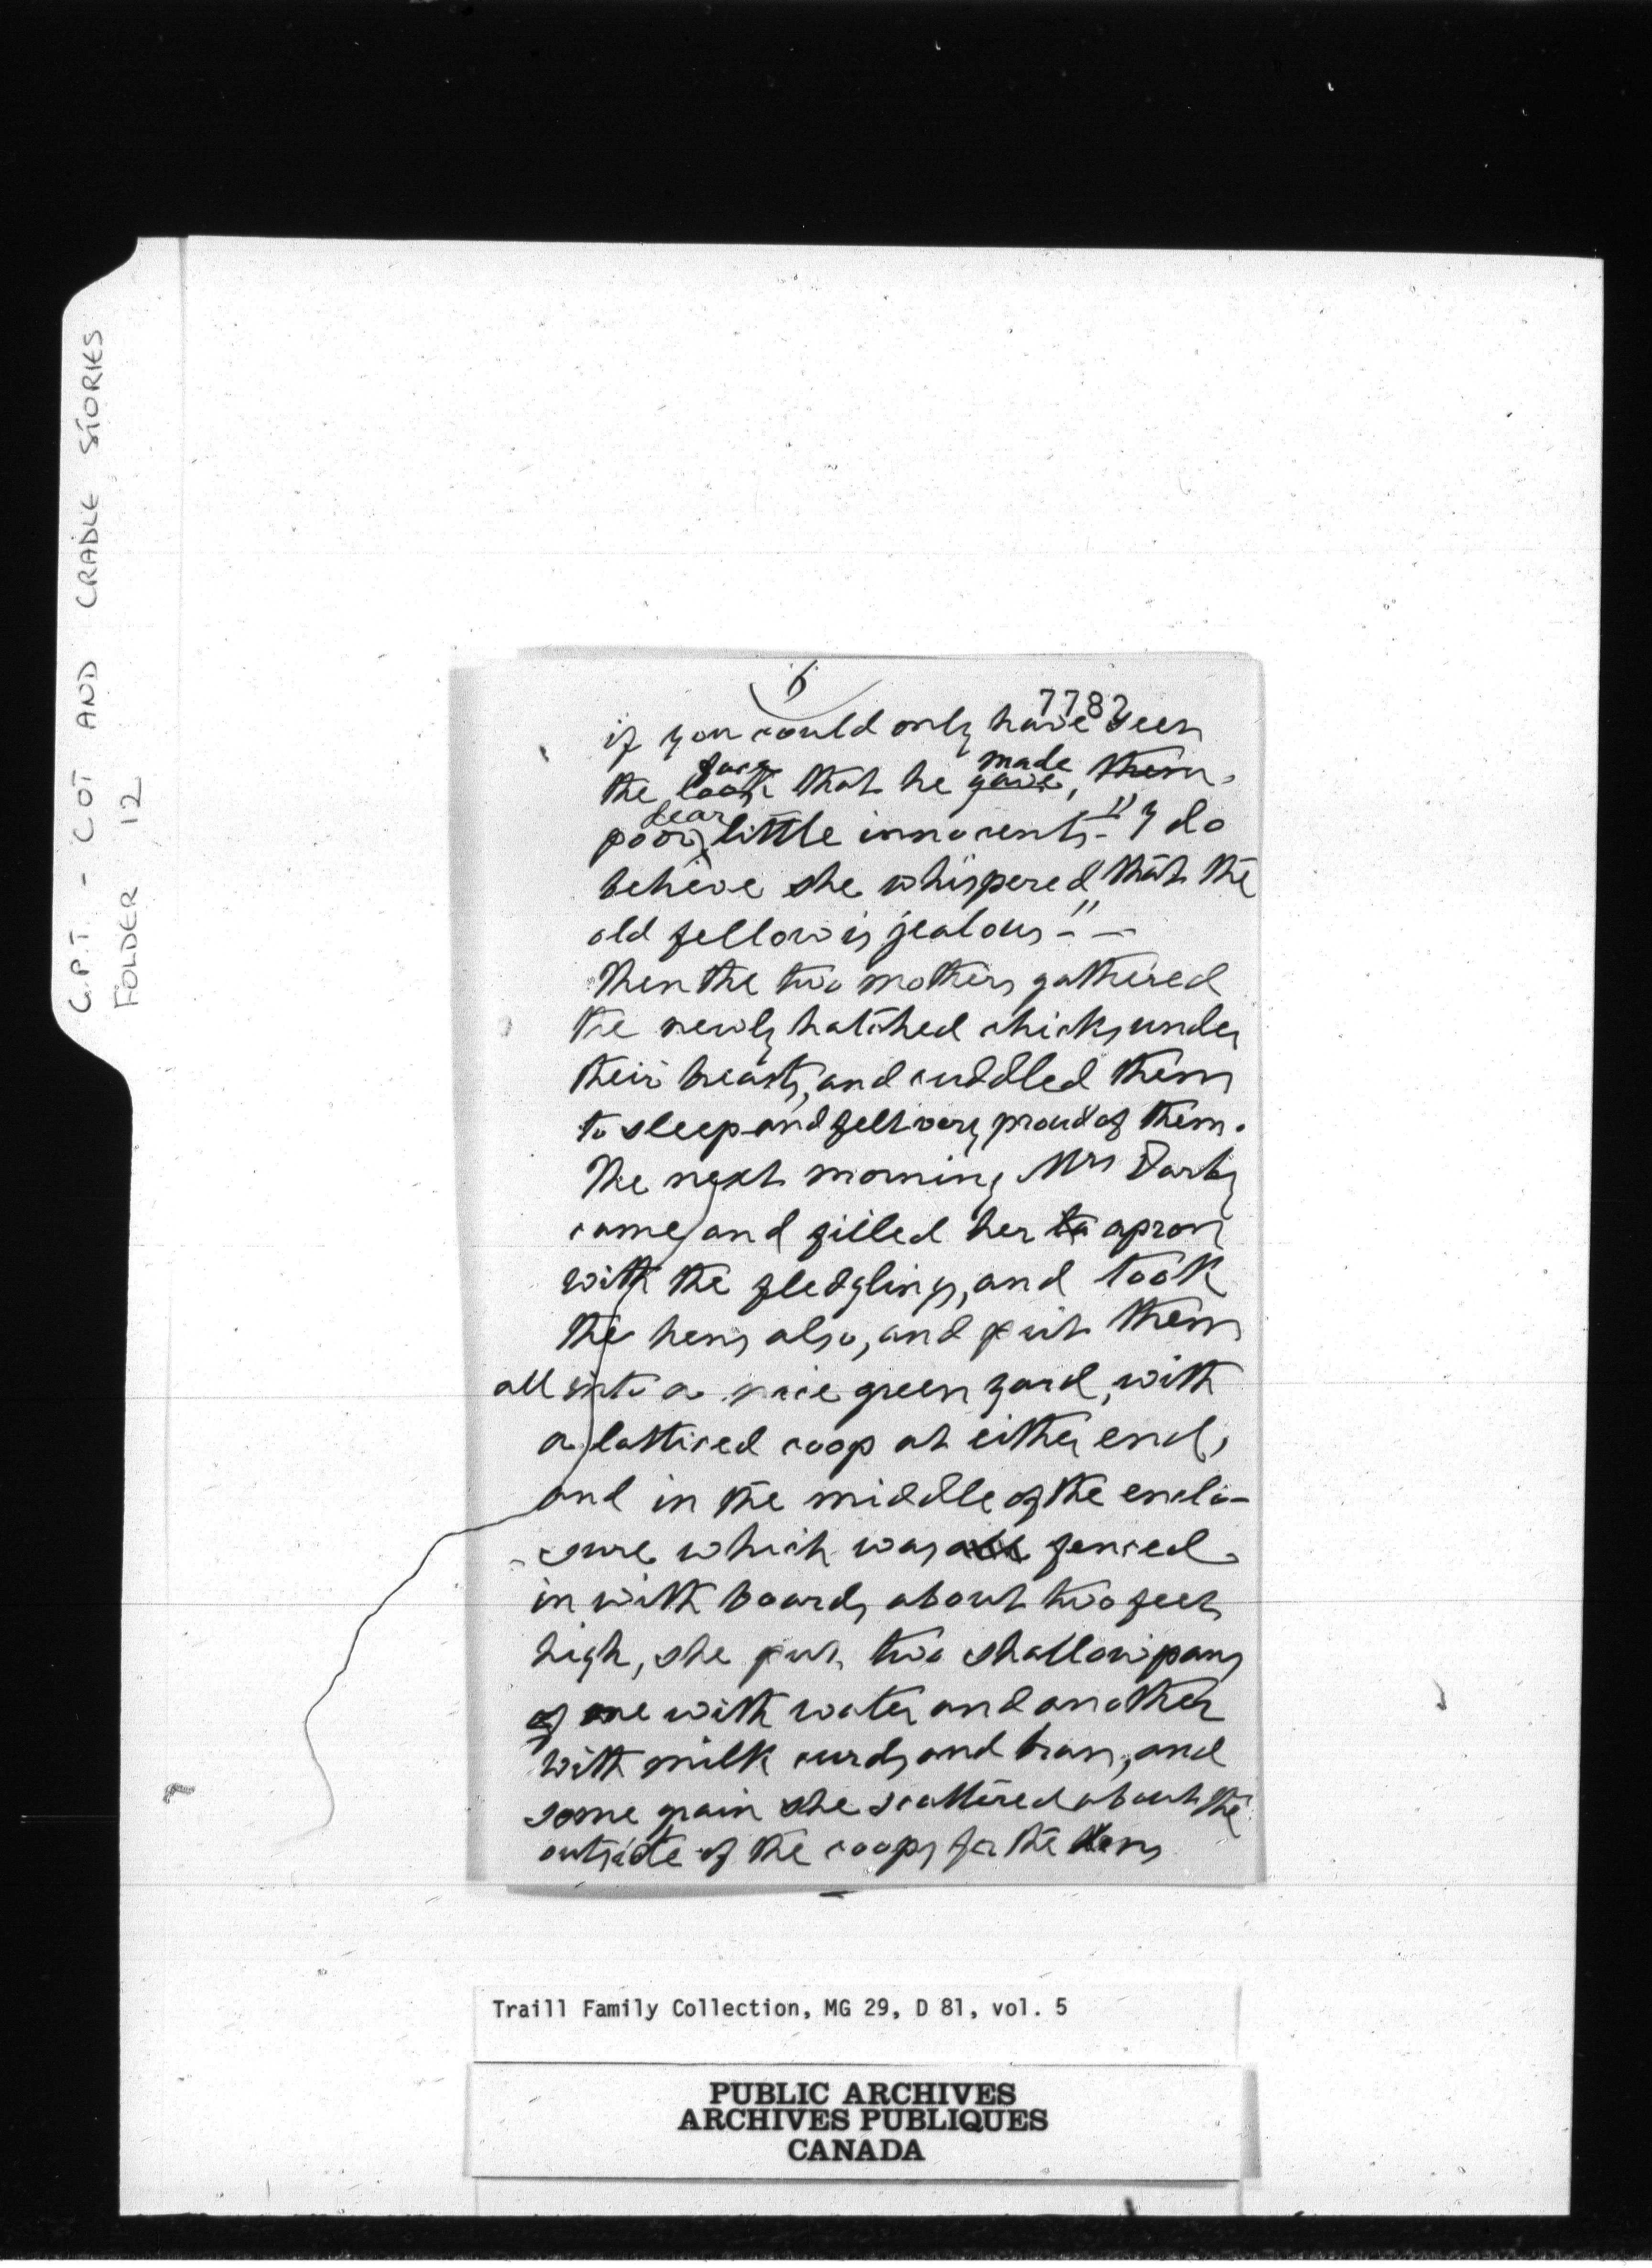 C.P.T. - COT AND CRADLE STORIES
FOLDER 12
6
7782
if you could only have seen
face made
the look that he gave, them.
dear
poor little innocents - " I do
believe she whispered "that the
old fellow is jealous - " -
Then the two mothers gathered
the newly hatched chicks under
their breasts, and cuddled them
to sleep and felt very proud of them.
The next morning Mrs Darby
came and filled her to apron
with the fledglings, and took
the hens also, and put them
all into a nice green yard, with
a latticed coop at either end,
and in the middle of the enclo-
sure which was all fenced
in with boards about two feet
high, she put two shallow pans
of one with water and another
with milk curds and bran, and
some grain she scattered about the
outside of the coops for the hens
Traill Family Collection, MG 29, D 81, vol. 5
PUBLIC ARCHIVES
ARCHIVES PUBLIQUES
CANADA